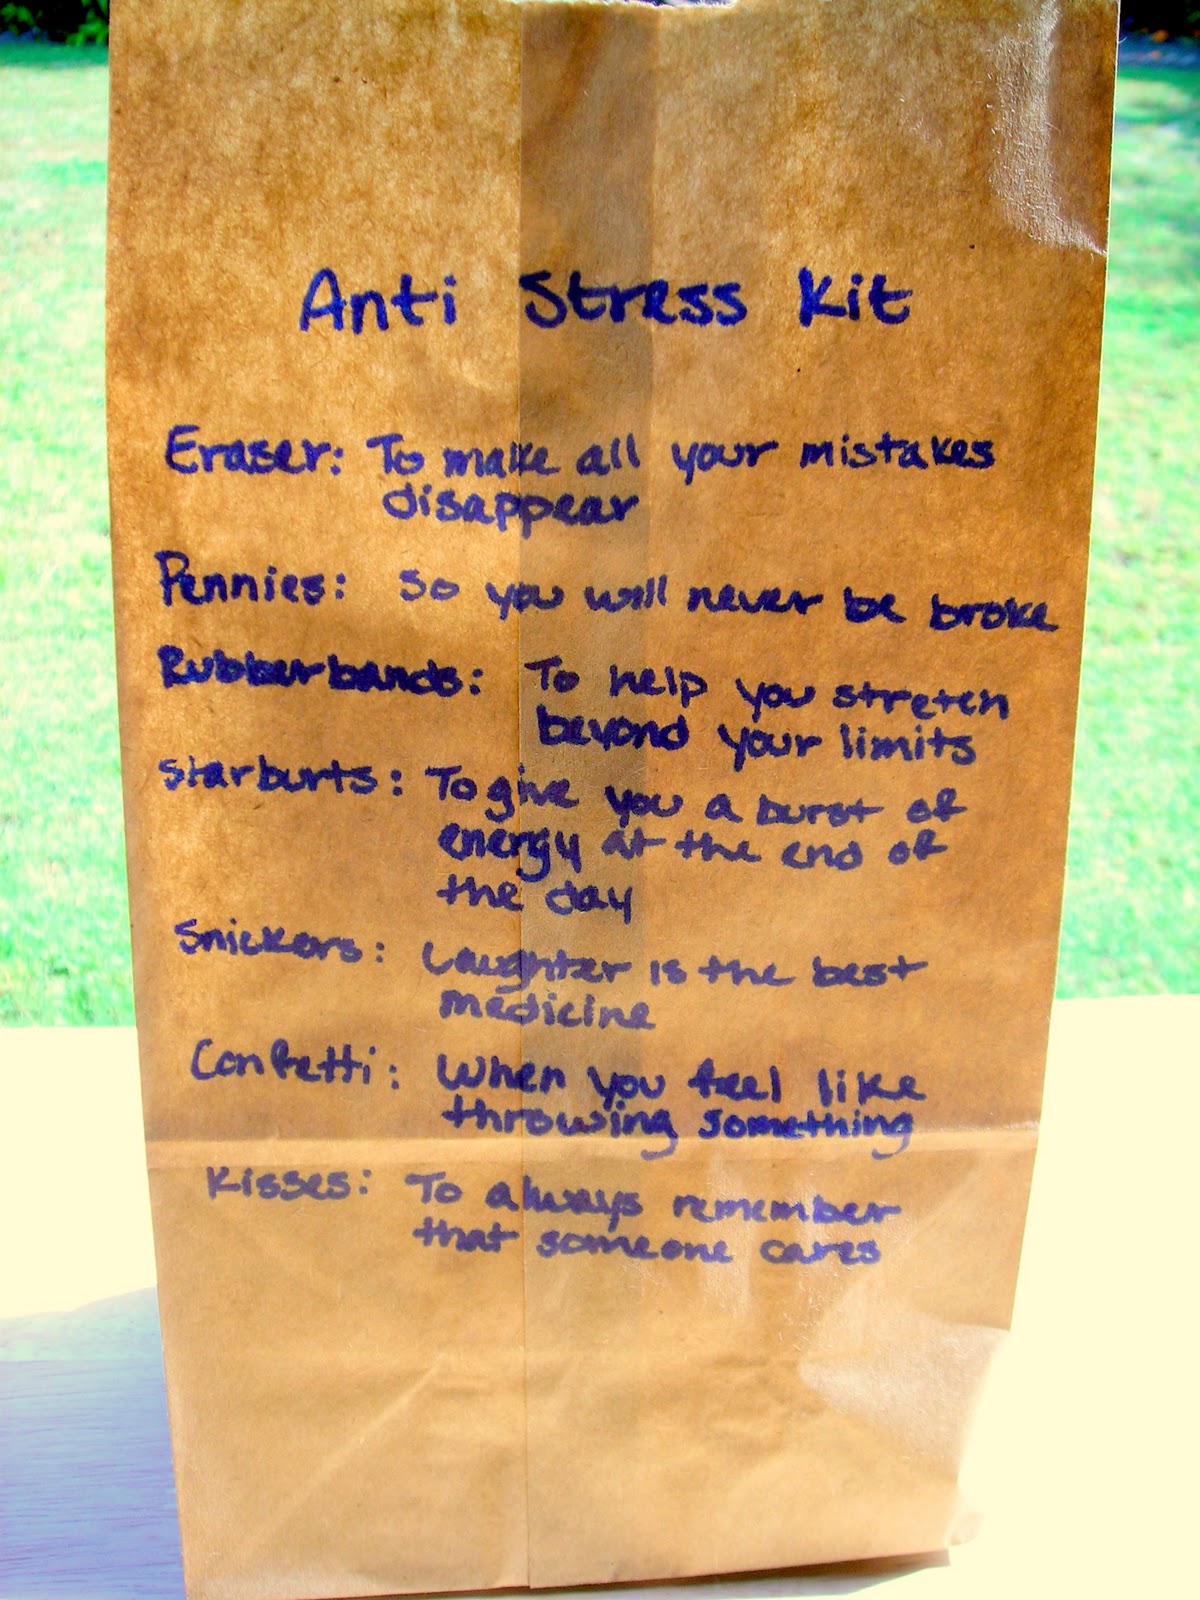 Anti Stress Kit
Eraser: To make all your mistakes
disappear
Pennies: So you will never be broke
Rubberbands: To help you stretch
beyond your limits
Starburts: To give you a burst of
energy at the end of
the day
Snickers: Laughter is the best
medicine
Confetti: When you feel like
throwing something
Kisses: To always remember
that someone cares